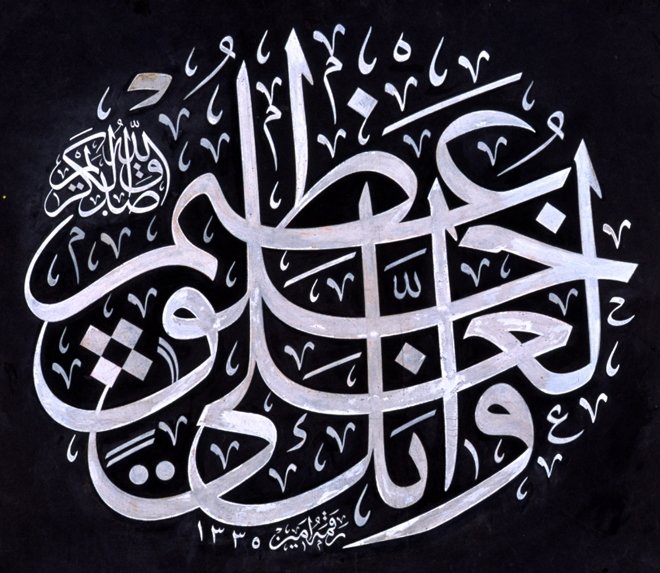 وإنك لعلى خلق عظيم
صدق الله الكريم
رقمه أمين ١٣٣٥